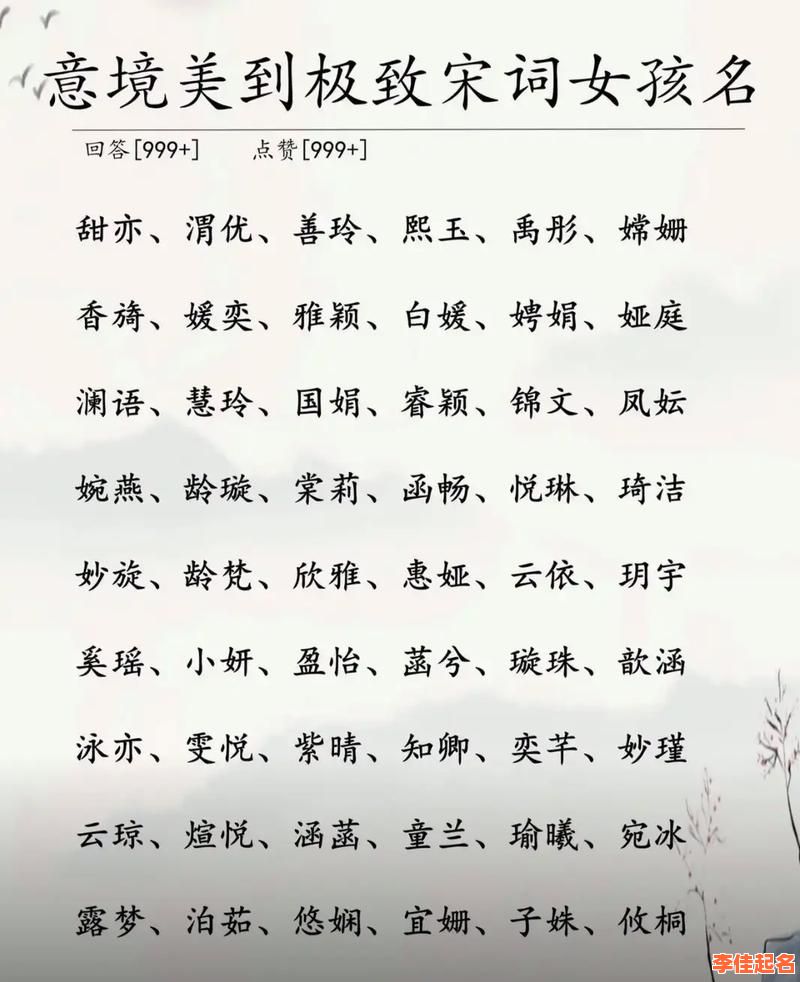 意境美到极致宋词女孩名
回答[999+] 点赞[999+]
甜亦、渭优、善玲、熙玉、禹彤、嫦姗
香旖、媛奕、雅颖、白媛、娉娟、娅庭
澜语、慧玲、国娟、睿颖、锦文、凤妘
婉燕、龄璇、棠莉、函畅、悦琳、琦洁
妙旋、龄梵、欣雅、惠娅、云依、玥宇
奚瑶、小妍、盈怡、菡兮、璇珠、歆涵
泳亦、雯悦、紫晴、知卿、奕芊、妙瑾
云琼、煊悦、涵菡、童兰、瑜曦、宛冰
露梦、泊茹、悠娴、宜姗、子姝、攸桐
李佳起名